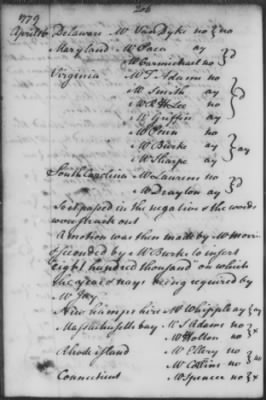 206
1779
April 16 Delaware Mr Van Dyke no } no
Maryland Mr Paca ay } d
Mr Carmichael no
Virginia Mr T. Adams no } D
Mr Smith ay
Mr R H Lee no
Mr Griffin ay
Mr Penn no } ay
Mr Burke ay
Mr Sharpe ay
South Carolina Mr Laurens no } d
Mr Drayton ay
So it passed in the negative & the words
were struck out
A motion was then made by Mr Morris
seconded by Mr Burke to insert
Eight hundred thousand on which
the yeas & nays being required by
Mr Jay
New hampshire Mr Whipple ay } ay
Massachusetts bay Mr S Adams no } x
Mr Holton no
Rhode island Mr Ellery no } no
Mr Collins no
Connecticut Mr Spencer no } x